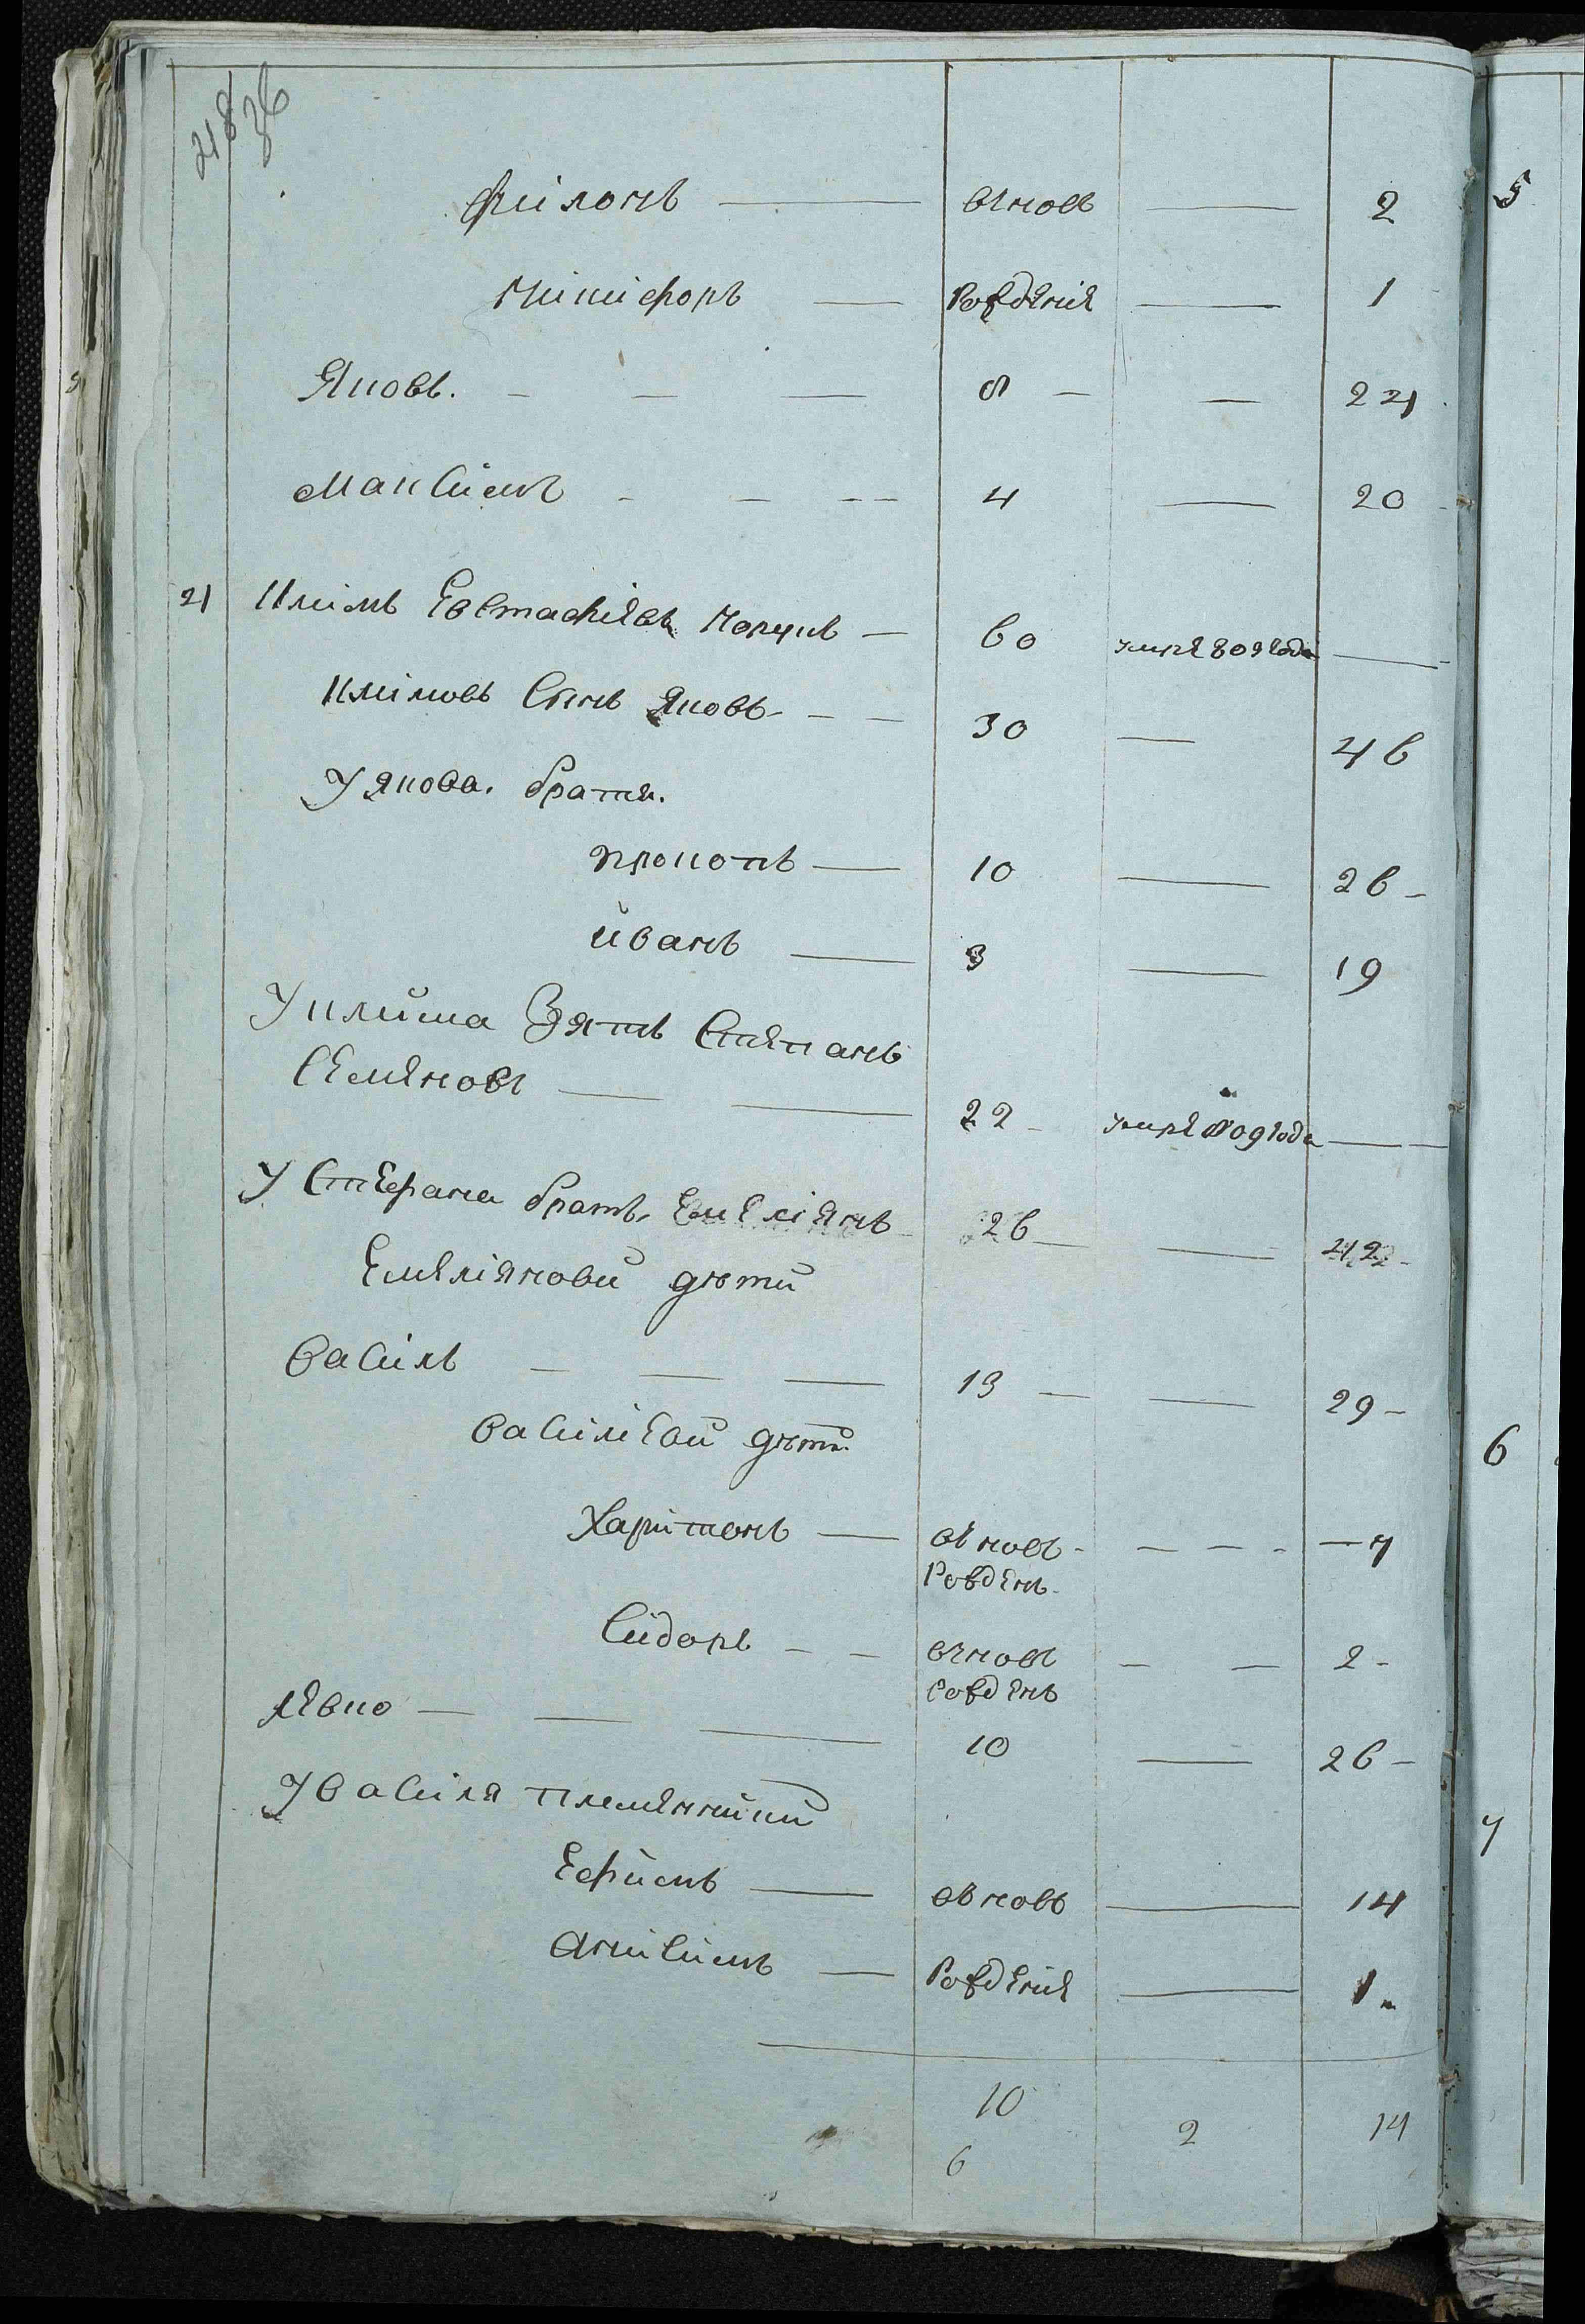 48
36
філонъ — вновъ — 2
нікіфоръ — рождения — 1
Яковъ. — — — 8 — — 24
Максімъ — — — 4 — 20
4 Клімъ Евстафіевъ — 60 умре 809 года —
Клімовъ Сынъ Яковъ — — 30 — 46
У Якова братя.
прокопъ — 10 — 26
иванъ — 3 — 19
У клима Зять Степанъ
Семеновъ — — 22 — умре 809 года —
У Стефана братъ Емеліянъ — 26 — — 42
Емеліянови дѣти
Васілъ — — — 13 — — 29
Васілієви дѣти
Харітонъ — вновъ — — — 7
рожденъ
Сидоръ — — вновъ — — 2
рожденъ
левко — — — 10 — 26
У Васіля племенники
Ефимъ — вновъ — 14
Анисимъ — рождения — 1
10 2 14
6
5
6
7